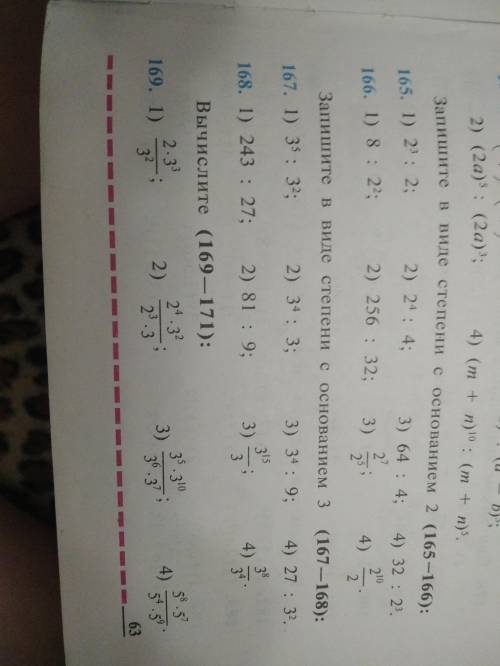 2) (2a)⁵ : (2a)³; 4) (m + n)¹⁰ : (m + n)⁵.
Запишите в виде степени с основанием 2 (165—166):
165. 1) 2³ : 2; 2) 2⁴ : 4; 3) 64 : 4; 4) 32 : 2³.
166. 1) 8 : 2²; 2) 256 : 32; 3) 2⁷/2⁵; 4) 2¹⁰/2.
Запишите в виде степени с основанием 3 (167—168):
167. 1) 3⁵ : 3²; 2) 3⁴ : 3; 3) 3⁴ : 9; 4) 27 : 3².
168. 1) 243 : 27; 2) 81 : 9; 3) 3¹⁵/3; 4) 3⁸/3⁴.
Вычислите (169—171):
169. 1) 2·3³/3²; 2) 2⁴·3²/2³·3; 3) 3⁵·3¹⁰/3⁶·3⁷; 4) 5⁸·5⁷/5⁴·5⁹.
63